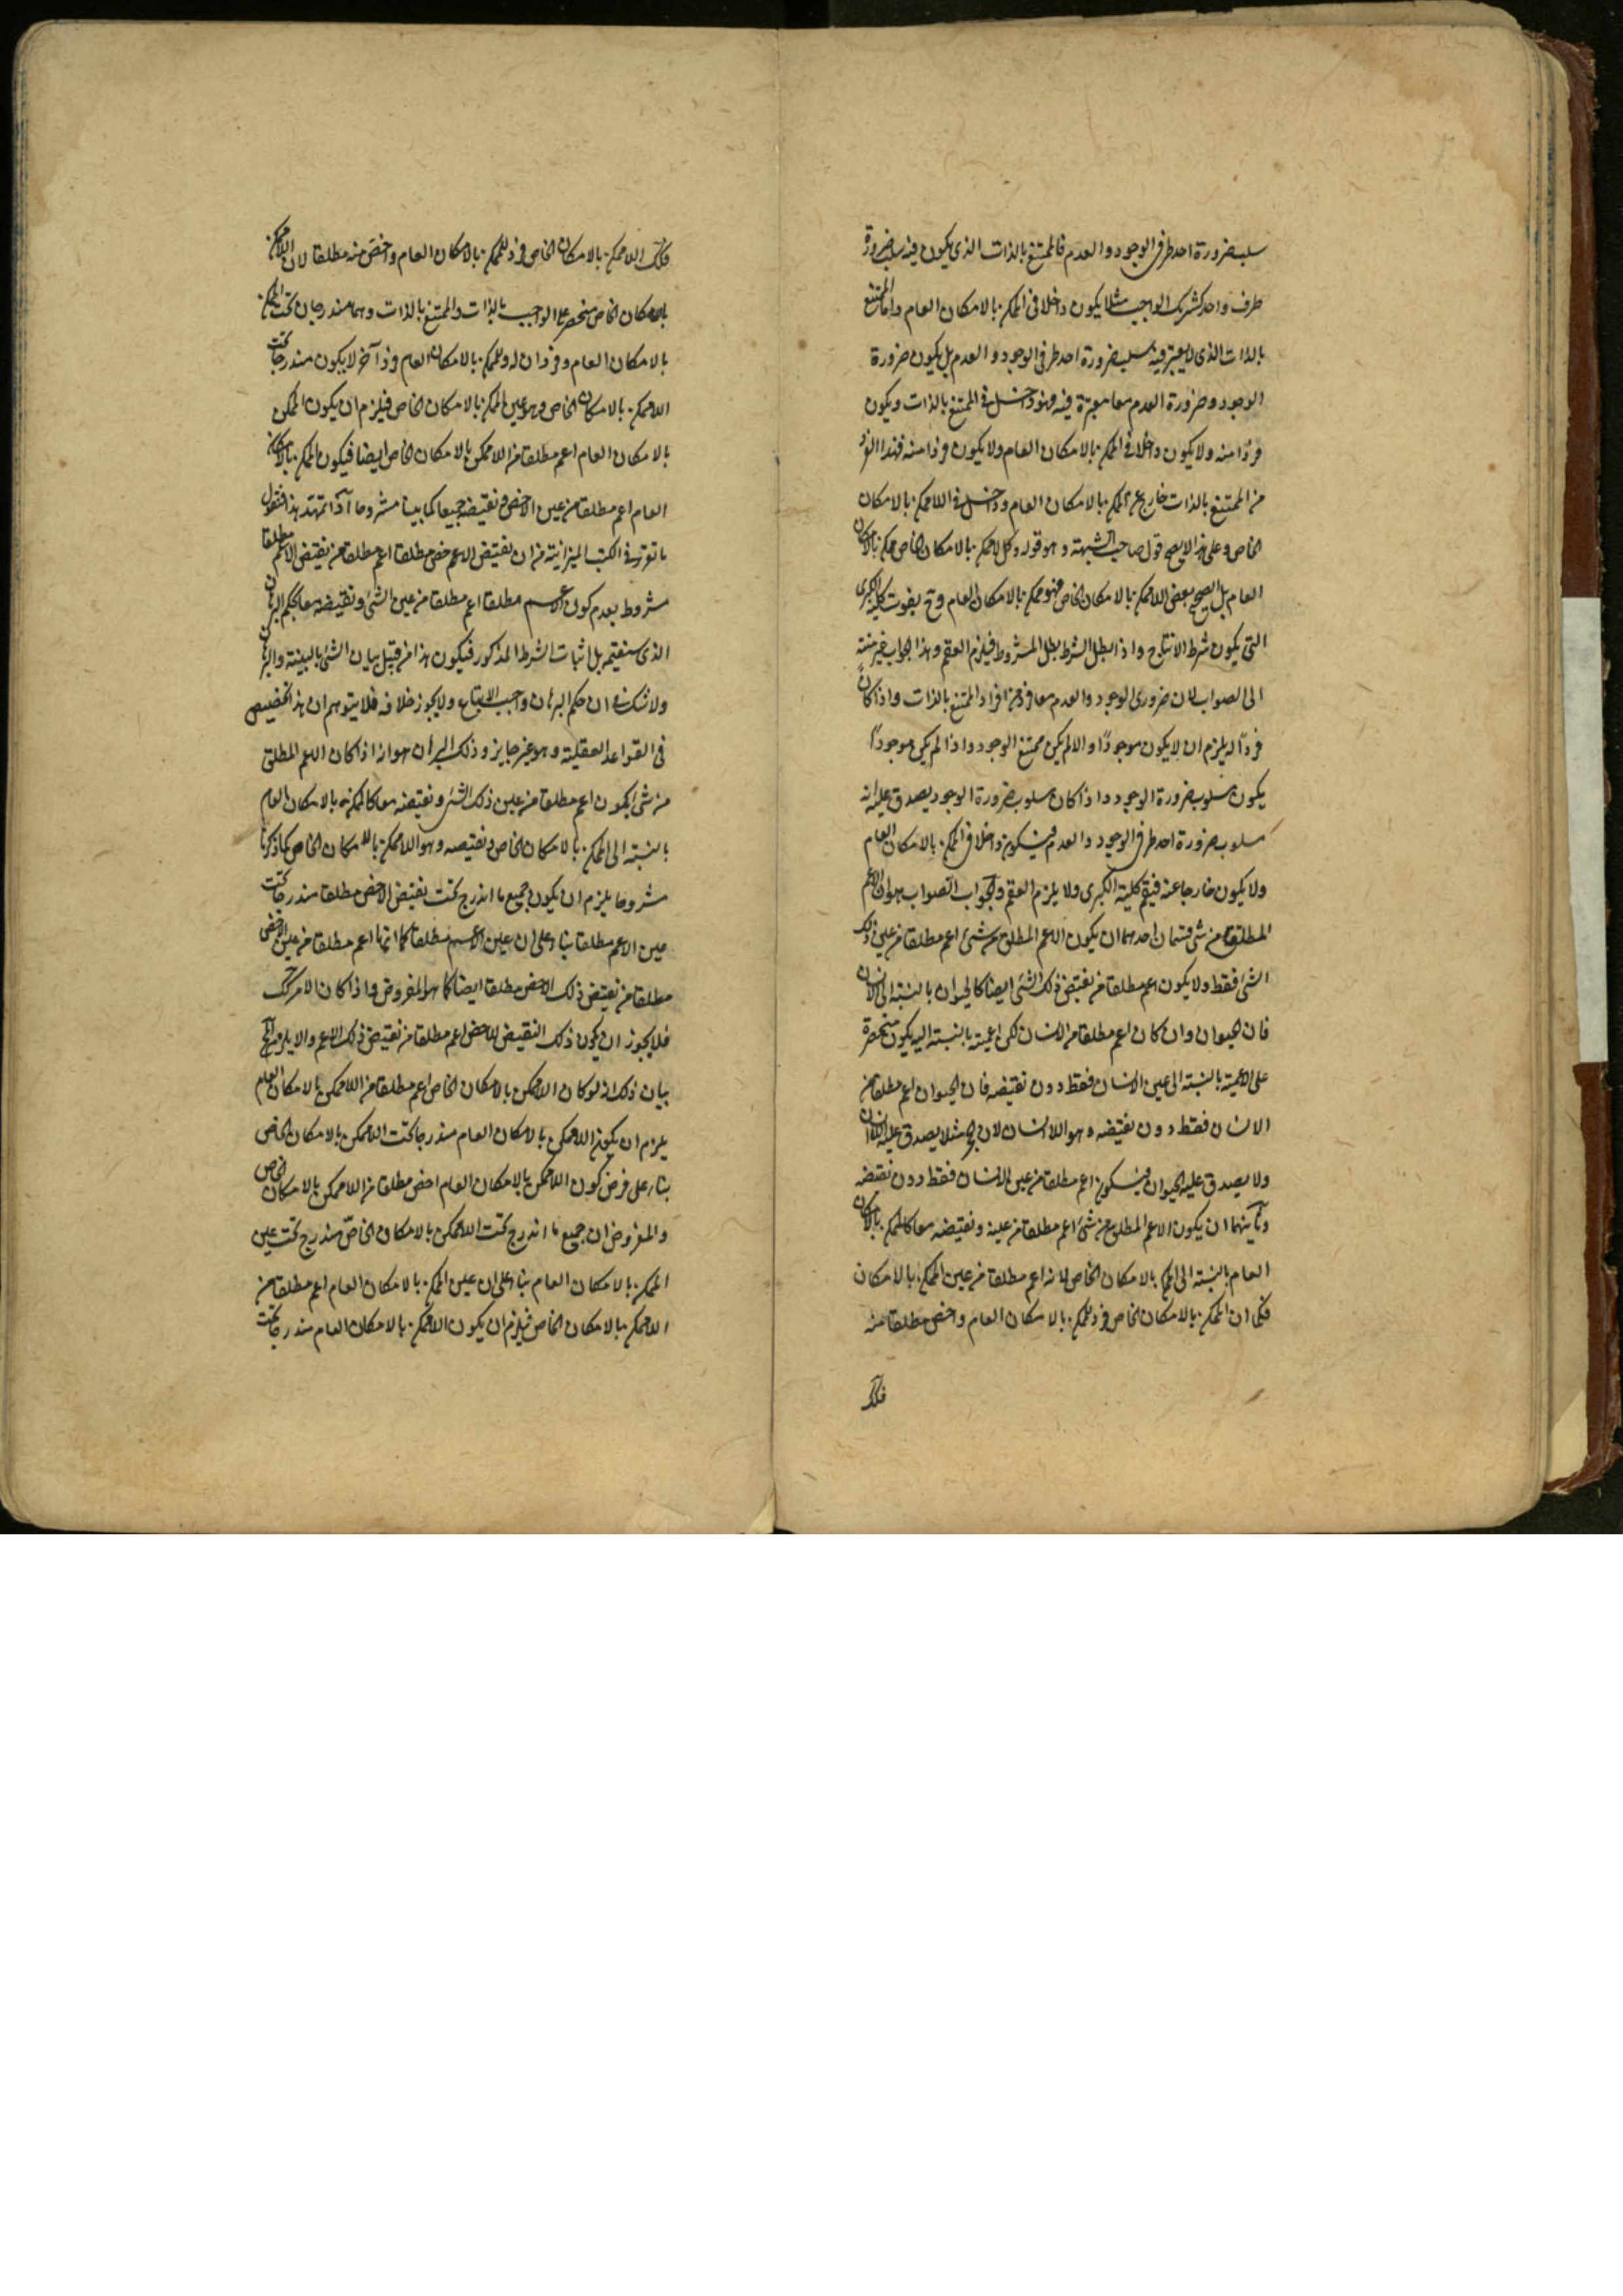 سلب ضرورة احد طرفى الوجود والعدم فالممتنع بالذات الذى يكون فيه سلب ضرورة
طرف واحد كشريك الواجب مثلا يكون داخلا فى الممكن بالامكان العام واما الممتنع
بالذات الذى لا يعتبر فيه سلب ضرورة احد طرفى الوجود والعدم بل يكون ضرورة
الوجود وضرورة العدم معا معتبرة فيه فهو داخل فى الممتنع بالذات ويكون
فردًا منه ولا يكون داخلا فى الممكن بالامكان العام ولا يكون فردا منه فهذا الفرد
من الممتنع بالذات خارج عن الممكن بالامكان العام وداخل فى اللاممكن بالامكان
الخاص وعلى هذا لا يصح قول صاحب الشبهة وهو قوله وكل لاممكن بالامكان الخاص ممكن بالامكان
العام بل يصح بعض اللاممكن بالامكان الخاص فهو ممكن بالامكان العام وح يفوت كلية الكبرى
التى يكون شرط الانتاج واذا بطل الشرط بطل المشروط فيلزم العقم وهذا الجواب غير منته
الى الصواب لان ضرورى الوجود والعدم معا فرد من افراد الممتنع بالذات واذا كان
فردًا له يلزم ان لا يكون موجودًا والا لم يكن ممتنع الوجود واذا لم يكن موجودًا
يكون مسلوب ضرورة الوجود واذا كان مسلوب ضرورة الوجود يصدق عليه انه
مسلوب ضرورة احد طرفى الوجود والعدم فيكون داخلا فى الممكن بالامكان العام
ولا يكون خارجا عنه فيتم كلية الكبرى ولا يلزم العقم والجواب الصواب هو ان الاعم
المطلق من شئ قسمان احدهما ان يكون الاعم المطلق من شئ اعم مطلقا من عين ذلك
الشئ فقط ولا يكون اعم مطلقا من نقيض ذلك الشئ ايضا كالحيوان بالنسبة الى الانسان
فان الحيوان وان كان اعم مطلقا من الانسان لكن اعميته بالنسبة اليه يكون منحصرة
على الاعمية بالنسبة الى عين الانسان فقط دون نقيضه فان الحيوان اعم مطلقا من
الانسان فقط دون نقيضه وهو اللاانسان لان الحجر مثلا يصدق عليه اللاانسان
ولا يصدق عليه الحيوان فيكون اعم مطلقا من عين الانسان فقط دون نقيضه
وثانيهما ان يكون الاعم المطلق من شئ اعم مطلقا من عينه ونقيضه معا كالممكن بالامكان
العام بالنسبة الى الممكن بالامكان الخاص لانه اعم مطلقا من عين الممكن بالامكان
فكما ان الممكن بالامكان الخاص فرد للممكن بالامكان العام واخص مطلقا منه
فكك
فكك اللاممكن بالامكان الخاص فرد للممكن بالامكان العام واخص منه مطلقا لان اللاممكن
بالامكان الخاص منحصر على الواجب بالذات والممتنع بالذات وهما مندرجان تحت الممكن
بالامكان العام وفردان له وللممكن بالامكان العام فرد آخر لا يكون مندرجا تحت
اللاممكن بالامكان الخاص وهو عين الممكن بالامكان الخاص فيلزم ان يكون الممكن
بالامكان العام اعم مطلقا من اللاممكن بالامكان الخاص ايضا فيكون الممكن بالامكان
العام اعم مطلقا من عين الاخص ونقيضه جميعا كما بينا مشروحا اذا تمهد هذا فنقول
ما تقرر فى الكتب الميزانية من ان نقيض الاعم خص مطلقا اعم مطلقا من نقيض الاعم مطلقا
مشروط بعدم كون الاعم مطلقا اعم مطلقا من عين الشئ ونقيضه معا بحكم البرهان
الذى سنقيمه بل اثبات الشرط المذكور فيكون هذا من قبيل بيان الشئ بالبينة والبرهان
ولا شك فى ان حكم البرهان واجب الاتباع ولا يجوز خلافه فلا يتوهم ان هذا تخصيص
فى القواعد العقلية وهو غير جايز وذلك البرهان هو انه اذا كان الاعم المطلق
من شئ يكون اعم مطلقا من عين ذلك الشئ ونقيضه معا كالممكن بالامكان العام
بالنسبة الى الممكن بالامكان الخاص ونقيضه وهو اللاممكن بالامكان الخاص كما ذكرنا
مشروحا يلزم ان يكون جميع ما اندرج تحت نقيض الاخص مطلقا مندرجا تحت
عين الاعم مطلقا بناء على ان عين الاعم مطلقا كما انها اعم مطلقا من عين الاخص
مطلقا من نقيض ذلك الاخص مطلقا ايضا كما هو المفروض واذا كان الامر كك
فلا يجوز ان يكون ذلك النقيض للاخص اعم مطلقا من نقيض ذلك الاعم والا يلزم المح
بيان ذلك انه لو كان اللاممكن بالامكان الخاص اعم مطلقا من اللاممكن بالامكان العام
يلزم ان يكون اللاممكن بالامكان العام مندرجا تحت اللاممكن بالامكان الخاص
بناء على فرض كون اللاممكن بالامكان العام اخص مطلقا من اللاممكن بالامكان الخاص
والمفروض ان جميع ما اندرج تحت اللاممكن بالامكان الخاص مندرج تحت عين
الممكن بالامكان العام بناء على ان عين الممكن بالامكان العام اعم مطلقا من
اللاممكن بالامكان الخاص فيلزم ان يكون اللاممكن بالامكان العام مندرجا تحت